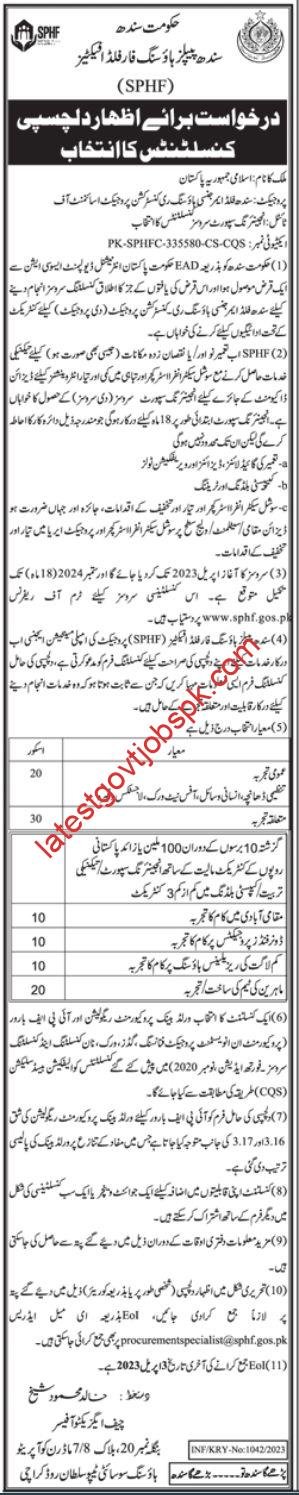 SPHF
حکومت سندھ
سندھ پیپلز ہاؤسنگ فار فلڈ افیکٹیز
(SPHF)
درخواست برائے اظہار دلچسپی
کنسلٹنٹس کا انتخاب
ملک کا نام: اسلامی جمہوریہ پاکستان
پروجیکٹ: سندھ فلڈ ایمرجنسی ہاؤسنگ ری کنسٹرکشن پروجیکٹ اسائنمنٹ آف
ٹائٹل: انجینئرنگ سپورٹ سروسز کنسلٹنٹس کا انتخاب
ایکٹیوٹی نمبر: PK-SPHFC-335580-CS-CQS
(1) حکومت سندھ کو بذریعہ EAD حکومت پاکستان انٹرنیشنل ڈیولپمنٹ ایسوسی ایشن سے
ایک قرض موصول ہوا ہے اور اس قرض کی یافتوں کے جز کا اطلاق کنسلٹنگ سروسز انجام دینے
کیلئے سندھ فلڈ ایمرجنسی ہاؤسنگ ری کنسٹرکشن پروجیکٹ (دی پروجیکٹ) کیلئے کنٹریکٹ
کے تحت ادائیگیوں کیلئے کرنے کی خواہاں ہے۔
(2) SPHF اب تعمیر نو اور/یا نقصان زدہ مکانات (جیسی بھی صورت ہو) کیلئے تکنیکی
خدمات حاصل کرنے مع سوشل سیکٹر انفرااسٹرکچر اور تباہی میں کمی اور تیار انٹروینشنز کیلئے ڈیزائن
ڈاکومنٹ کے جائزے کیلئے کنسلٹنگ انجینئرنگ سپورٹ سروسز (دی سروسز) کے حصول کا خواہاں
ہے۔ انجینئرنگ سپورٹ ابتدائی طور پر 18 ماہ کیلئے درکار ہوگی جو مندرجہ ذیل دائرہ کار کا احاطہ
کرے گی لیکن ان تک محدود نہیں ہوگی
a- تعمیر کی گائیڈ لائنز، ڈیزائنز اور ویریفکیشن ٹولز
b- کپیسٹی بلڈنگ اور ٹریننگ
c- سوشل سیکٹر انفرااسٹرکچر اور تخفیف کے اقدامات، جائزہ اور جہاں ضرورت ہو
ڈیزائن مقامی/سیٹلمنٹ/ولیج سطح پر سوشل سیکٹر انفرااسٹرکچر اور پروجیکٹ ایریا میں تیار اور
تخفیف کے اقدامات۔
(3) سروسز کا آغاز اپریل 2023 تک کردیا جائے گا اور ستمبر 2024 (18 ماہ) تک
تکمیل متوقع ہے۔ اس کنسلٹینسی سروسز کیلئے ٹرم آف ریفرنس
www.sphf.gos.pk پر دستیاب ہیں۔
(4) سندھ پیپلز ہاؤسنگ فار فلڈ افیکٹیز (SPHF) پروجیکٹ کی امپلی مینٹیشن ایجنسی اب
درکار خدمات انجام دینے میں اپنی دلچسپی کی صراحت کیلئے کنسلٹنگ فرم کو مدعو کرتی ہے، دلچسپی کی حامل
کنسلٹنگ فرم ایسی معلومات مہیا کریں کہ جن سے ثابت ہوتا ہو کہ وہ خدمات انجام دینے
کیلئے درکار قابلیت اور متعلقہ تجربے کی حامل ہیں۔
(5) معیار انتخاب درج ذیل ہے
معیار اسکور
عمومی تجربہ 20
تنظیمی ڈھانچہ، انسانی وسائل، آفس نیٹ ورک، لاجسٹکس
متعلقہ تجربہ 30
گزشتہ 10 برسوں کے دوران 100 ملین یا زائد پاکستانی
روپوں کے کنٹریکٹ مالیت کے ساتھ انجینئرنگ سپورٹ/تکنیکی
تربیت/کپیسٹی بلڈنگ میں کم از کم 3 کنٹریکٹ
مقامی آبادی میں کام کا تجربہ 10
ڈونر فنڈز پروجیکٹس پر کام کا تجربہ 10
کم لاگت کی ریزیلینس ہاؤسنگ پر کام کا تجربہ 10
ماہرین کی ٹیم کی ساخت/تجربہ 20
(6) ایک کنسلٹنٹ کا انتخاب ورلڈ بینک پروکیورمنٹ ریگولیشن اور آئی پی ایف بارور
(پروکیورمنٹ ان انویسٹمنٹ پروجیکٹ فنانسنگ، گڈز، ورک، نان کنسلٹنگ اینڈ کنسلٹنگ
سروسز۔ فورتھ ایڈیشن، نومبر 2020) میں پیش کئے گئے کنسلٹنٹس کوالیفکیشن بیسڈ سلیکشن
(CQS) طریقہ کی مطابقت سے کیا جائے گا۔
(7) دلچسپی کی حامل فرم کو آئی پی ایف بارور کیلئے ورلڈ بینک پروکیورمنٹ ریگولیشن کی شق
3.16 اور 3.17 کی جانب متوجہ کیا جاتا ہے جس میں مفاد کے تنازع پر ورلڈ بینک کی پالیسی
ترتیب دی گئی ہے۔
(8) کنسلٹنٹ اپنی قابلیتوں میں اضافہ کیلئے ایک جوائنٹ وینچر یا ایک سب کنسلٹینسی کی شکل
میں دیگر فرم کے ساتھ اشتراک کرسکتے ہیں۔
(9) مزید معلومات دفتری اوقات کے دوران ذیل میں دیئے گئے پتہ سے حاصل کی جاسکتی
ہیں۔
(10) تحریری شکل میں اظہار دلچسپی (شخصی طور پر یا بذریعہ کوریئر) ذیل میں دیئے گئے پتہ
پر لازماً جمع کرادی جائیں، EoI بذریعہ ای میل ایڈریس
procurementspecialist@sphf.gos.pk پر بھی جمع کرائی جاسکتی ہیں۔
(11) EoI جمع کرانے کی آخری تاریخ 3 اپریل 2023 ہے۔
دستخط: خالد محمود شیخ
چیف ایگزیکٹو آفیسر
بنگلہ نمبر 20، بلاک 7/8 ماڈرن کوآپریٹو
ہاؤسنگ سوسائٹی ٹیپو سلطان روڈ کراچی
INF/KRY-No:1042/2023
پڑھے گا سندھ تو..... بڑھے گا سندھ
latestgovtjobspk.com